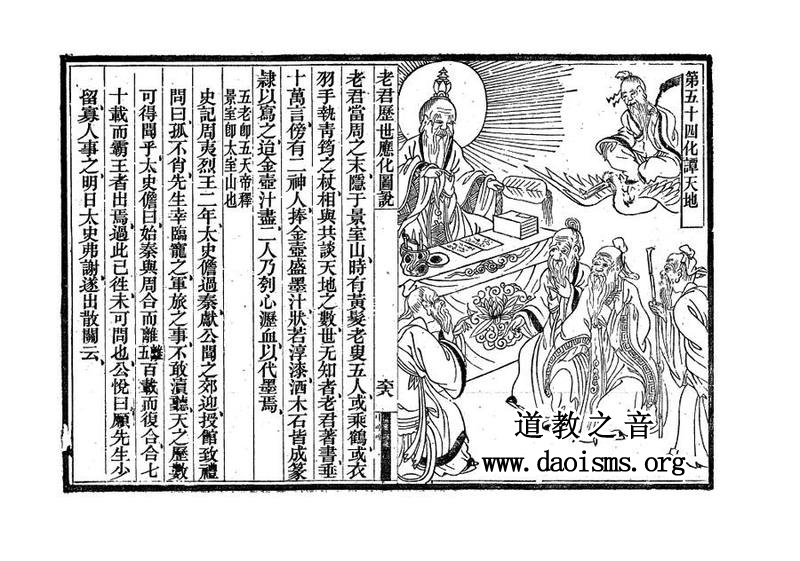 第五十四化譚天地
老君歷世應化圖說
老君當周之末隱于景室山時有黃髮老叟五人或乘鶴或衣
羽手執青筠之杖相與共談天地之數世無知者老君著書垂
十萬言傍有二神人捧金壺盛墨汁狀若淳漆洒木石皆成篆
隸以寫之迨金壺汁盡二人乃刳心瀝血以代墨焉
五老即五天帝釋
景室即太室山也
史記周夷烈王二年太史儋過秦獻公聞之郊迎授館致禮
問曰孤不肖先生幸臨寵之軍旅之事不敢瀆聽天之歷數
可得聞乎太史儋曰始秦與周合而離離五百載而復合合七
十載而霸王者出焉過此已往未可問也公悅曰願先生少
留寡人事之明日太史弗謝遂出散關云
道教之音
www.daoisms.org